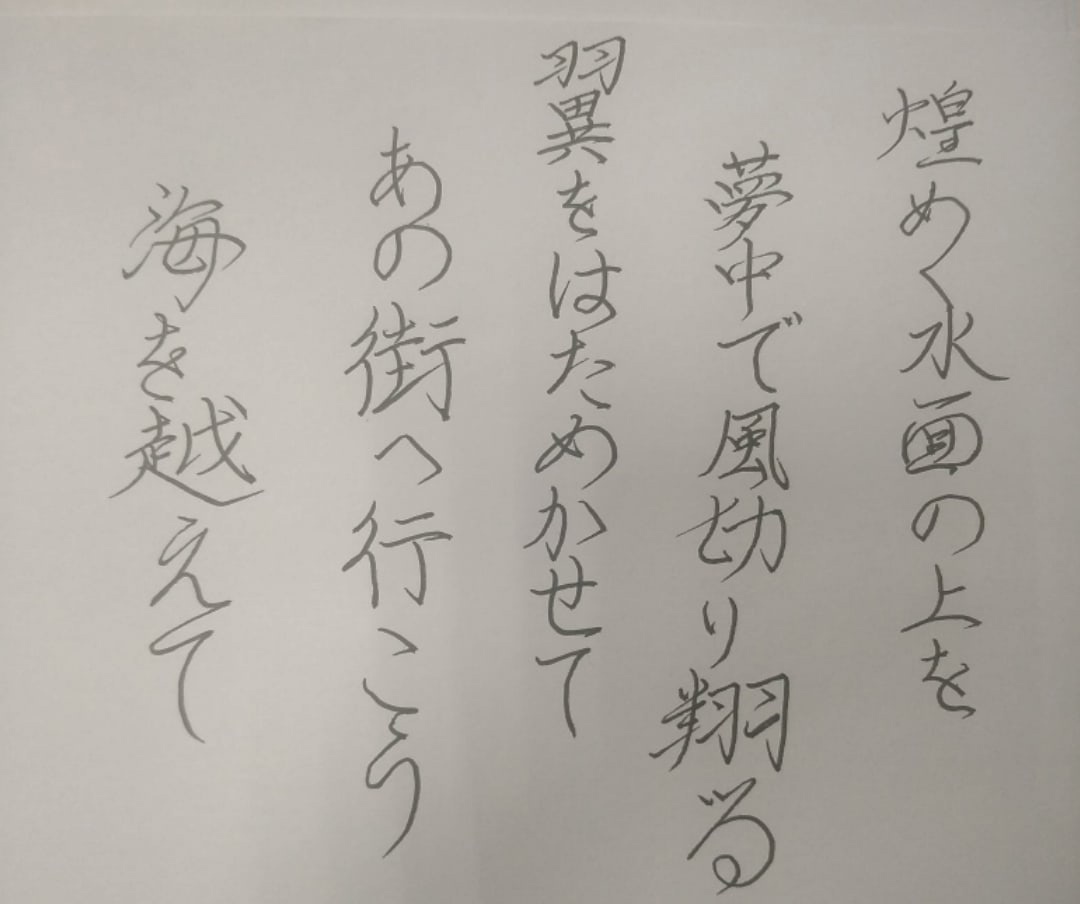 煌めく水面の上を
夢中で風切り翔る
翼をはためかせて
あの街へ行こう
海を越えて